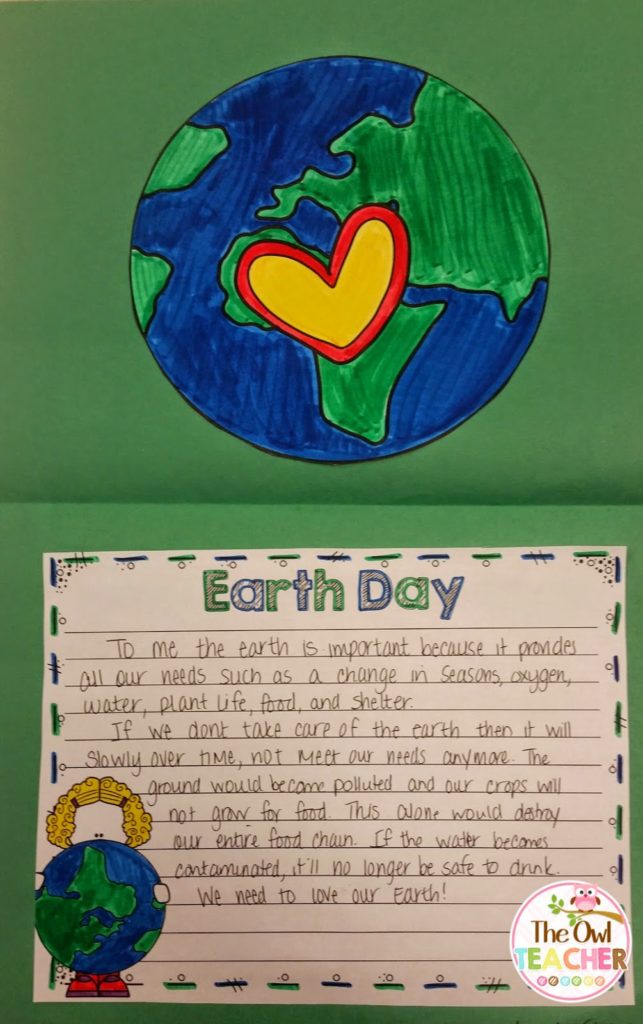 Earth Day
To me the earth is important because it provides
all our needs such as a change in seasons, oxygen,
water, plant life, food, and shelter.
If we dont take care of the earth then it will
slowly over time, not meet our needs anymore. The
ground would become polluted and our crops will
not grow for food. This alone would destroy
our entire food chain. If the water becomes
contaminated, it'll no longer be safe to drink.
We need to love our Earth!
The Owl
TEACHER